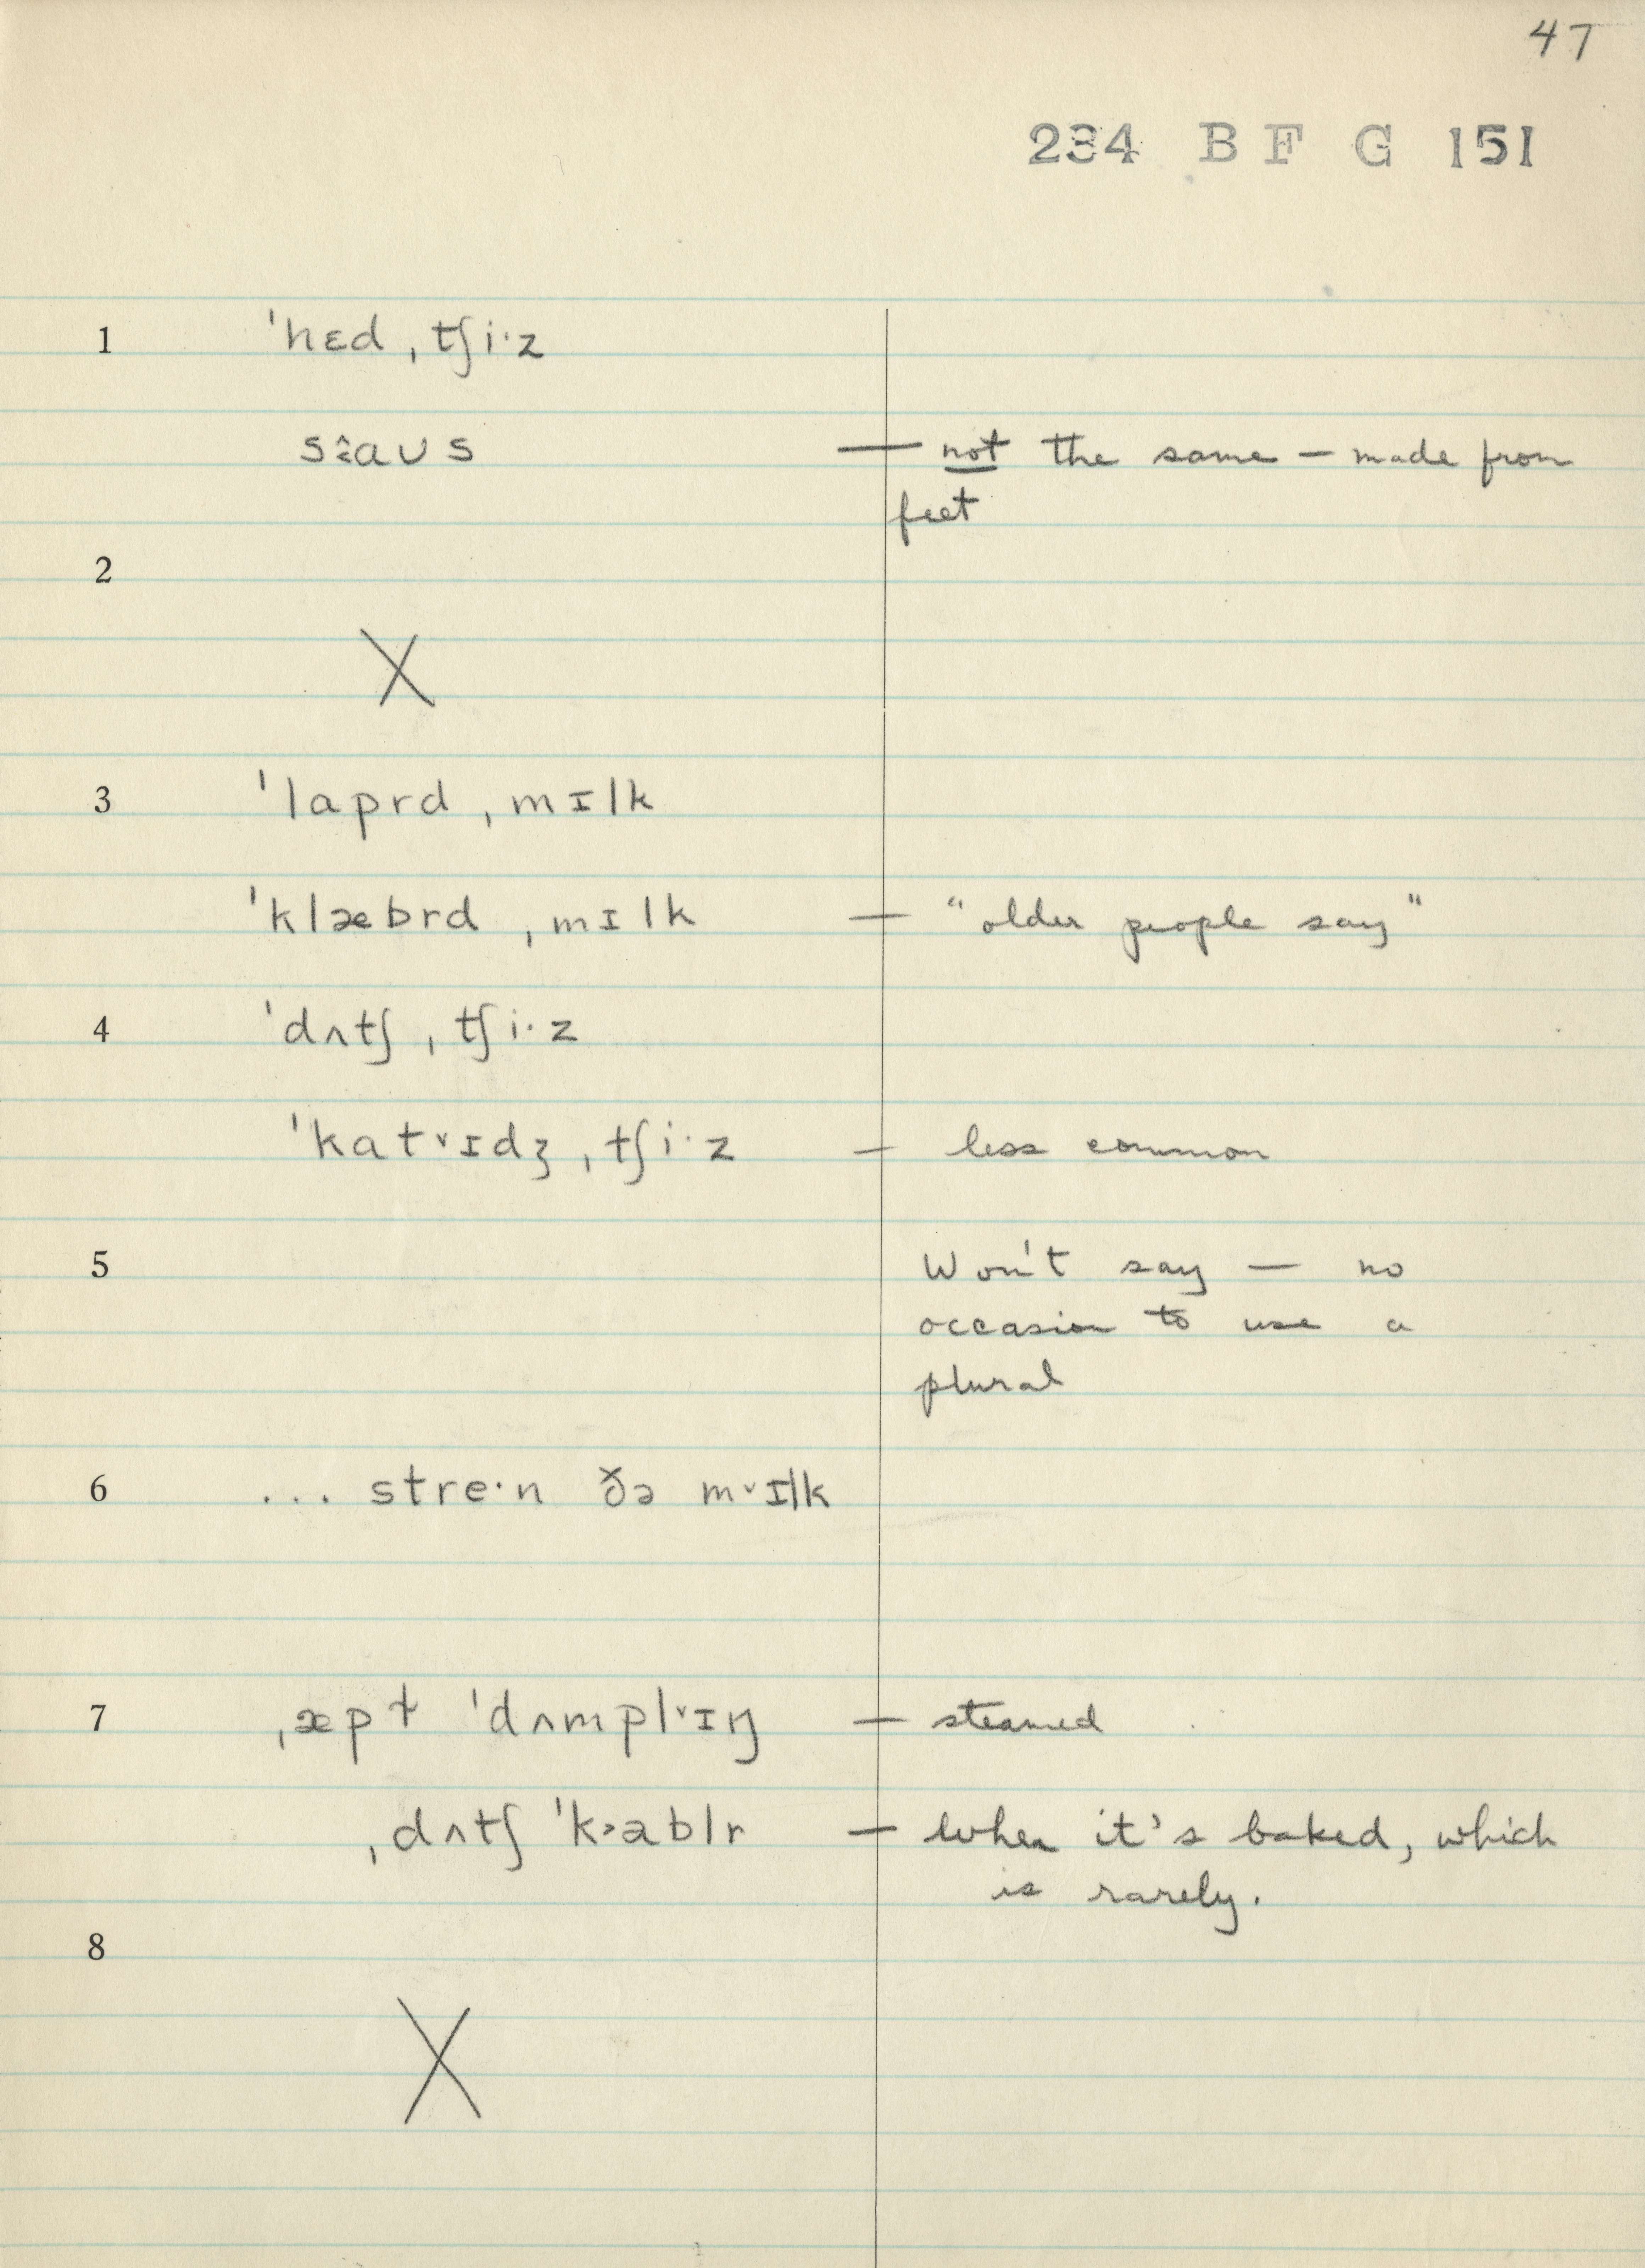 47
234 B F G 151
1 ˈhɛd ˌtʃi·z
saʊs — not the same — made from
feet
2
X
3 ˈlaprd ˌmɪlk
ˈklæbrd ˌmɪlk — "older people say"
4 ˈdʌtʃ ˌtʃi·z
ˈkatˇɪdʒ ˌtʃi·z — less common
5 Won't say — no
occasion to use a
plural
6 ... stre·n ðə mˇɪlk
7 ˌæpɫ ˈdʌmplˇɪŋ — steamed
ˌdʌtʃ ˈk˃ablr — when it's baked, which
is rarely.
8
X